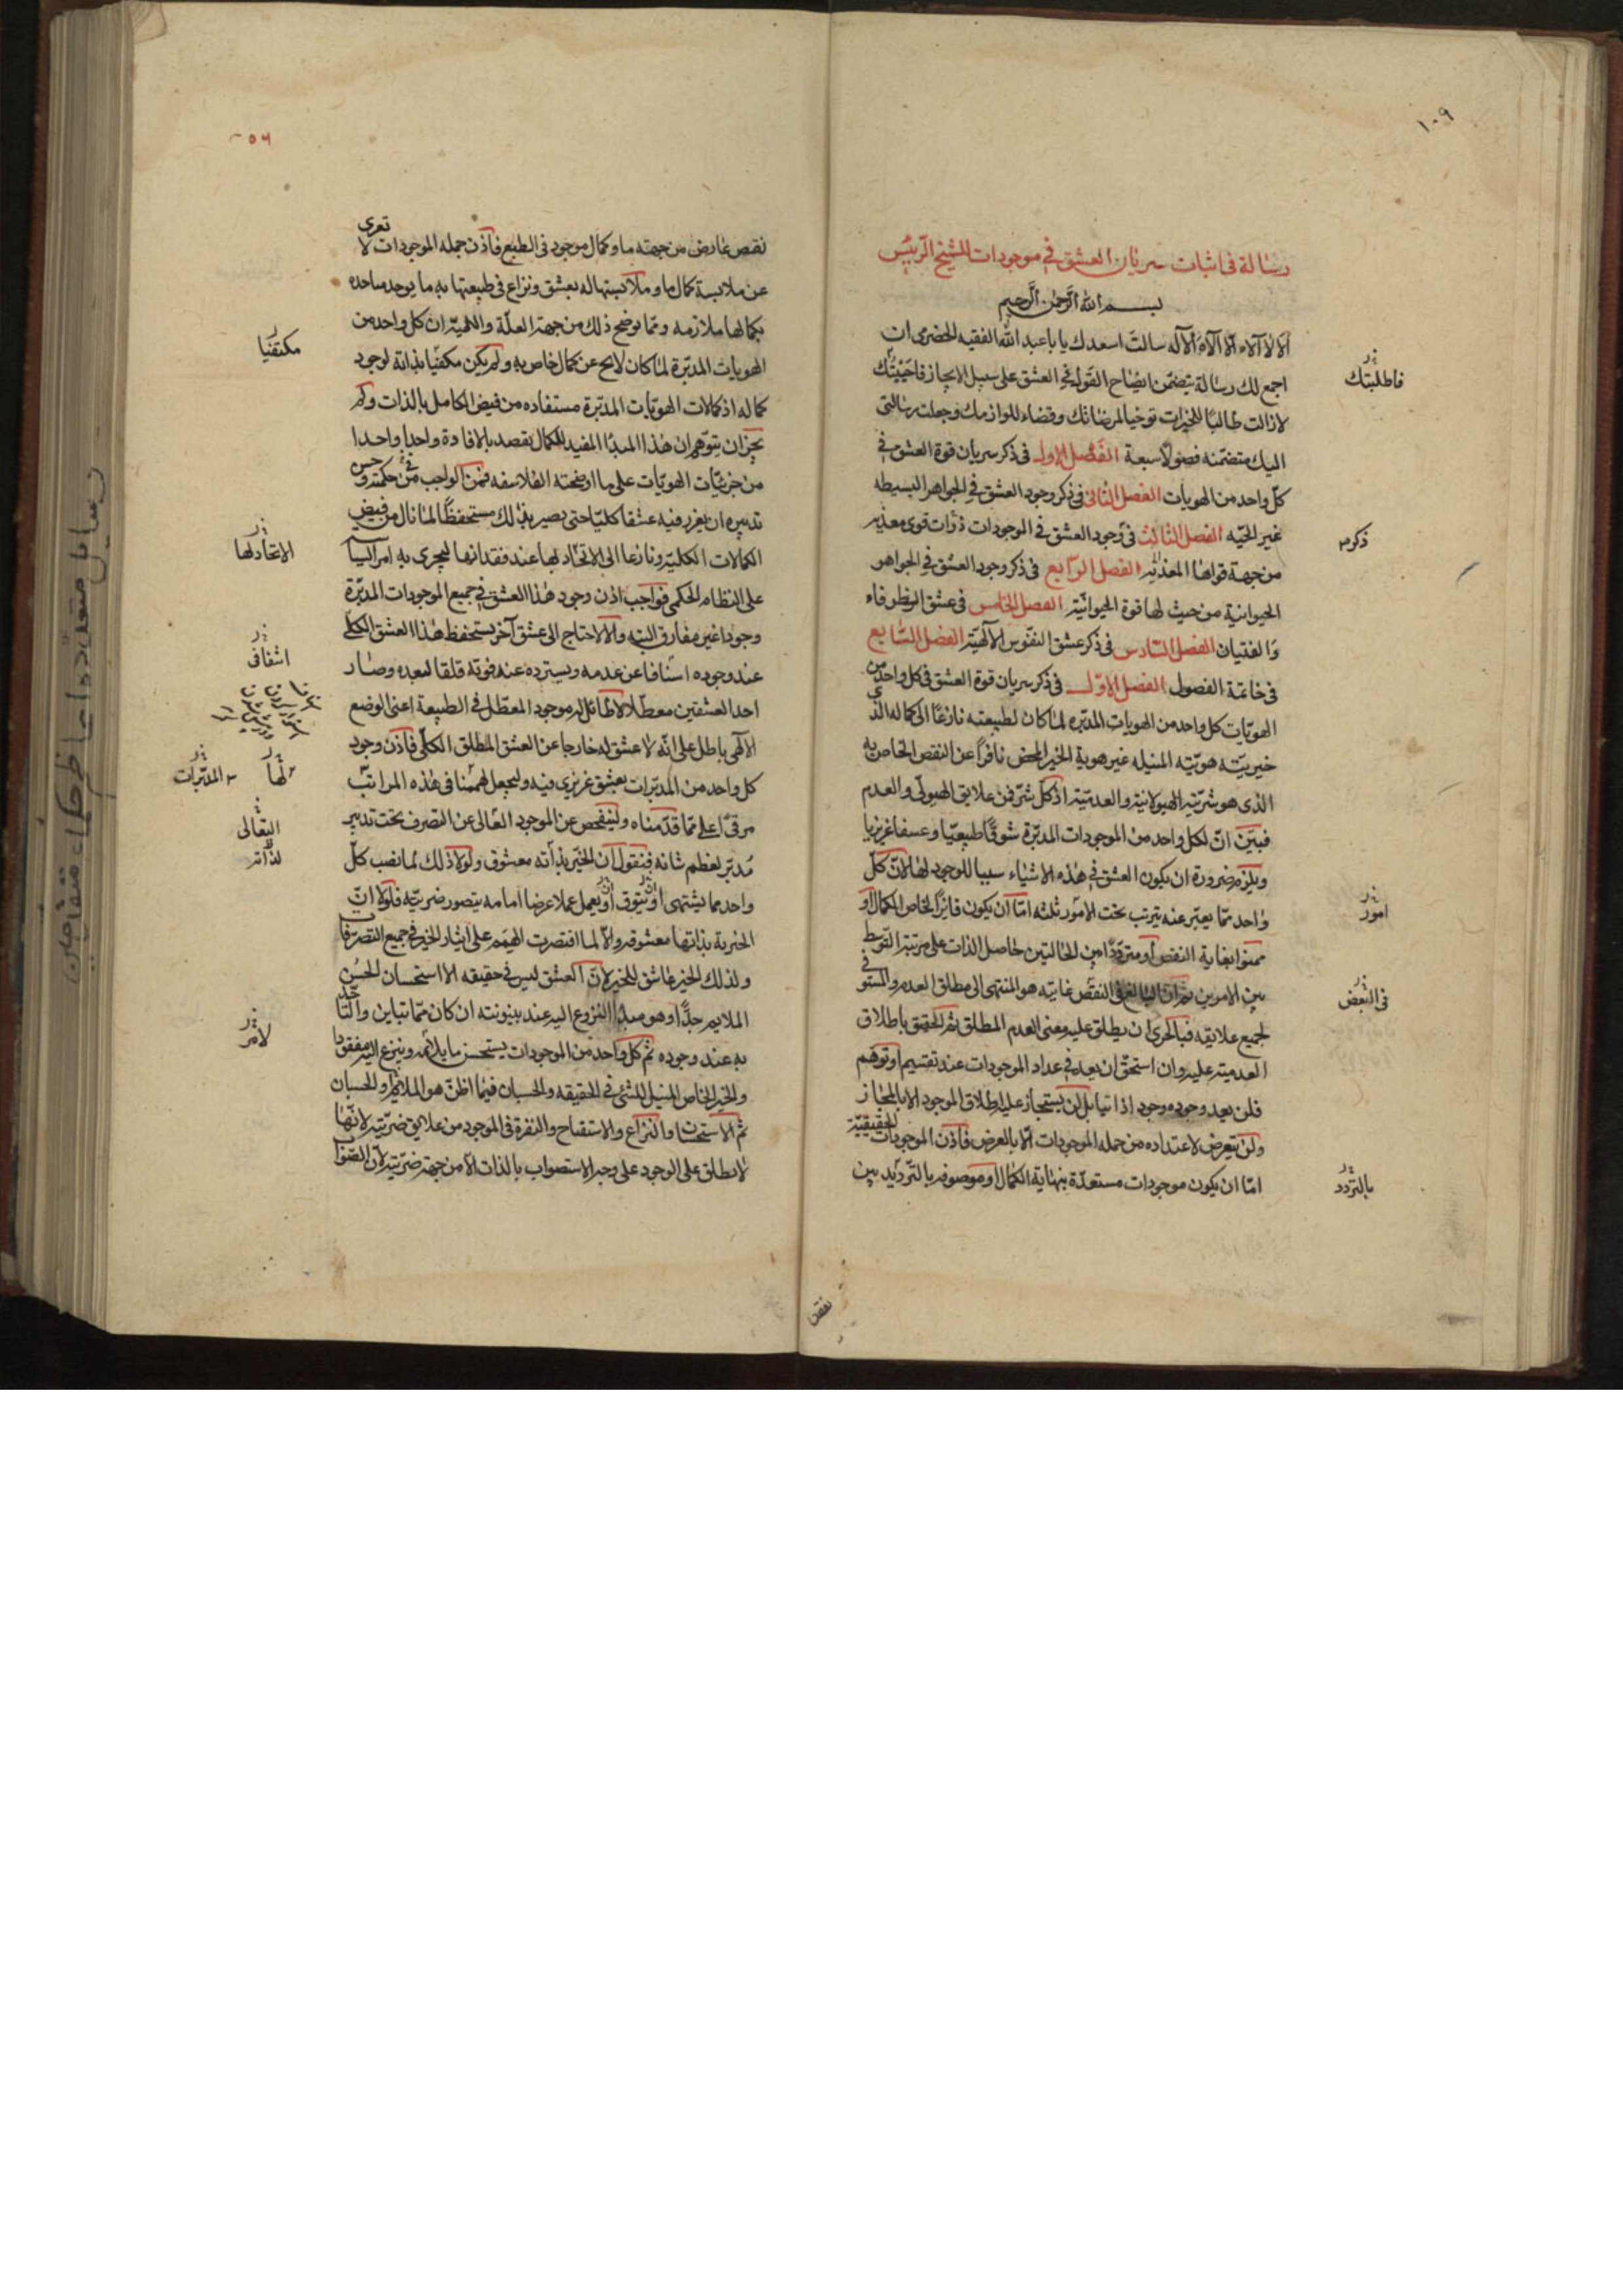 ١٠٩
رسالة فى اثبات سريان العشق فى موجودات للشيخ الرئيس
بسم الله الرحمن الرحيم
سالت اسعدك يا با عبد الله الفقيه الحضرمى ان
اجمع لك رسالة يتضمن ايضاح القول فى العشق على سبيل الايجاز فاجبتك
فاطلبتك
لازالت طالبا للخيرات توخيا لمرضاتك وقضاء للوازمك وجعلت رسالتى
اليك متضمنه فصولا سبعة الفصل الاول فى ذكر سريان قوة العشق فى
كل واحد من الهويات الفصل الثانى فى ذكر وجود العشق فى الجواهر البسيطه
غير الحيه الفصل الثالث فى وجود العشق فى الموجودات ذوات قوى مغذيه
ذكر
من جهة قواها المغذيه الفصل الرابع فى ذكر وجود العشق فى الجواهر
الحيوانية من حيث لها قوة الحيوانية الفصل الخامس فى عشق الظرفاء
والفتيان الفصل السادس فى ذكر عشق النفوس الالهية الفصل السابع
فى خاتمة الفصول الفصل الاول فى ذكر سريان قوة العشق فى كل واحد من
الهويات كل واحد من الهويات المدبره لما كان لطبيعته نازعا الى كماله الذى
خيريته هويته المنيله غير هوية الخير المحض نافرا عن النقص الخاص به
الذى هو شريته الهيولانية والعدمية اذ كل شر فمن علايق الهيولى والعدم
فبين ان لكل واحد من الموجودات المدبرة شوقا طبيعيا وعشقا غريزيا
ويلزم ضرورة ان يكون العشق فى هذه الاشياء سببا للوجود لها لان كل
واحد مما يعبر عنه يترتب تحت الامور ثلثه اما ان يكون فائزا لخاص الكمال او
امور
ممنوا بغاية النقص او مترددا بين الحالتين حاصل الذات على مرتبة التوسط
بين الامرين ثم ان البالغ فى النقص غايته هو المنتهى الى مطلق العدم والمستوفى
فى النقص
لجميع علايقه فبالحرى ان يطلق عليه معنى العدم المطلق ثم الحقيق باطلاق
العدمية عليه وان استحق ان يعد فى عداد الموجودات عند تقسيم او توهم
فلن يعد وجوده وجودا ذاتيا بل لن يستجاز عليه اطلاق الموجود الا بالمجاز
ولن يتعرض لاعتداده من جمله الموجودات الا بالعرض فاذن الموجودات الحقيقية
اما ان يكون موجودات مستعدة بنهاية الكمال او موصوفه بالترديد بين
بالتردد
نقص
٥٦
نقص عارض من جهته ما وكمال موجود فى الطبع فاذن جمله الموجودات لا تعرى
عن ملابسة كمال ما وملابستها له بعشق ونزاع فى طبيعتها به ما يوحد ساحده
بكمالها ملازمه ومما يوضح ذلك من جهة العلة واللمية ان كل واحد من
الهويات المدبرة لما كان لا يخ عن كمال خاص به ولم يكن مكفيا بذاته لوجود
مكتفيا
كماله اذ كمالات الهويات المدبرة مستفاده من فيض الكامل بالذات ولم
يجز ان يتوهم ان هذا المبدا المفيد للكمال يقصد بالافادة واحدا واحدا
من جزئيات الهويات على ما اوضحته الفلاسفه فمن الواجب فى حكمته وحسن
تدبيره ان يغرز فيه عشقا كليا حتى يصير بذلك مستحفظا لما نال من فيض
الكمالات الكلية ونازعا الى الاتحاد لها عند فقدانها ليجرى به امر السياسة
الاتحاد لها
على النظام الحكمى فواجب اذن وجود هذا العشق فى جميع الموجودات المدبرة
وجودا غير مفارق البته والا لاحتاج الى عشق آخر يستحفظ هذا العشق الكلى
عند وجوده اشفاقا عن عدمه ويسترده عند فوته قلقا لبعده وصار
احد العشقين معطلا لا طائل له وموجود المعطل فى الطبيعة اعنى الوضع
الالهى باطل على انه لا عشق له خارجا عن العشق المطلق الكلى فاذن وجود
كل واحد من المدبرات بعشق غريزى فيه ولنجعل لهمنا فى هذه المراتب
لها
المدبرات
مرقى اعلى مما قدمناه ولنفحص عن الموجود العالى عن التصرف تحت تدبير
التعالى
مدبر لعظم شانه فنقول ان الخير بذاته معشوق ولولا ذلك لما نصب كل
لذاته
واحد مما يشتهى او يتوق او يعمل عملا غرضا امامه يتصور خيريته فلولا ان
الخيرية بذاتها معشوقه والا لما اقتصرت الهمم على ايثار الخير فى جميع التصرفات
ولذلك الخير عاشق للخير لان العشق ليس فى حقيقه الا استحسان الحسن
الملايم جدا وهو مبدا النزوع اليه عند بينونته ان كان مما تباين والتاحد
به عند وجوده ثم كل واحد من الموجودات يستحسن ما يلائمه وينزع اليه مفقودا
والخير الخاص المنيل للشئ فى الحقيقه والحسبان فيما اظن هو الملائم والحسبان
ثم الاستحسان والنزاع والاستقباح والنفرة فى الموجود من علايق خيريته لانها
لا يطلق على الوجود على وجه الاستصواب بالذات الا من جهة خيريته لان الصواب